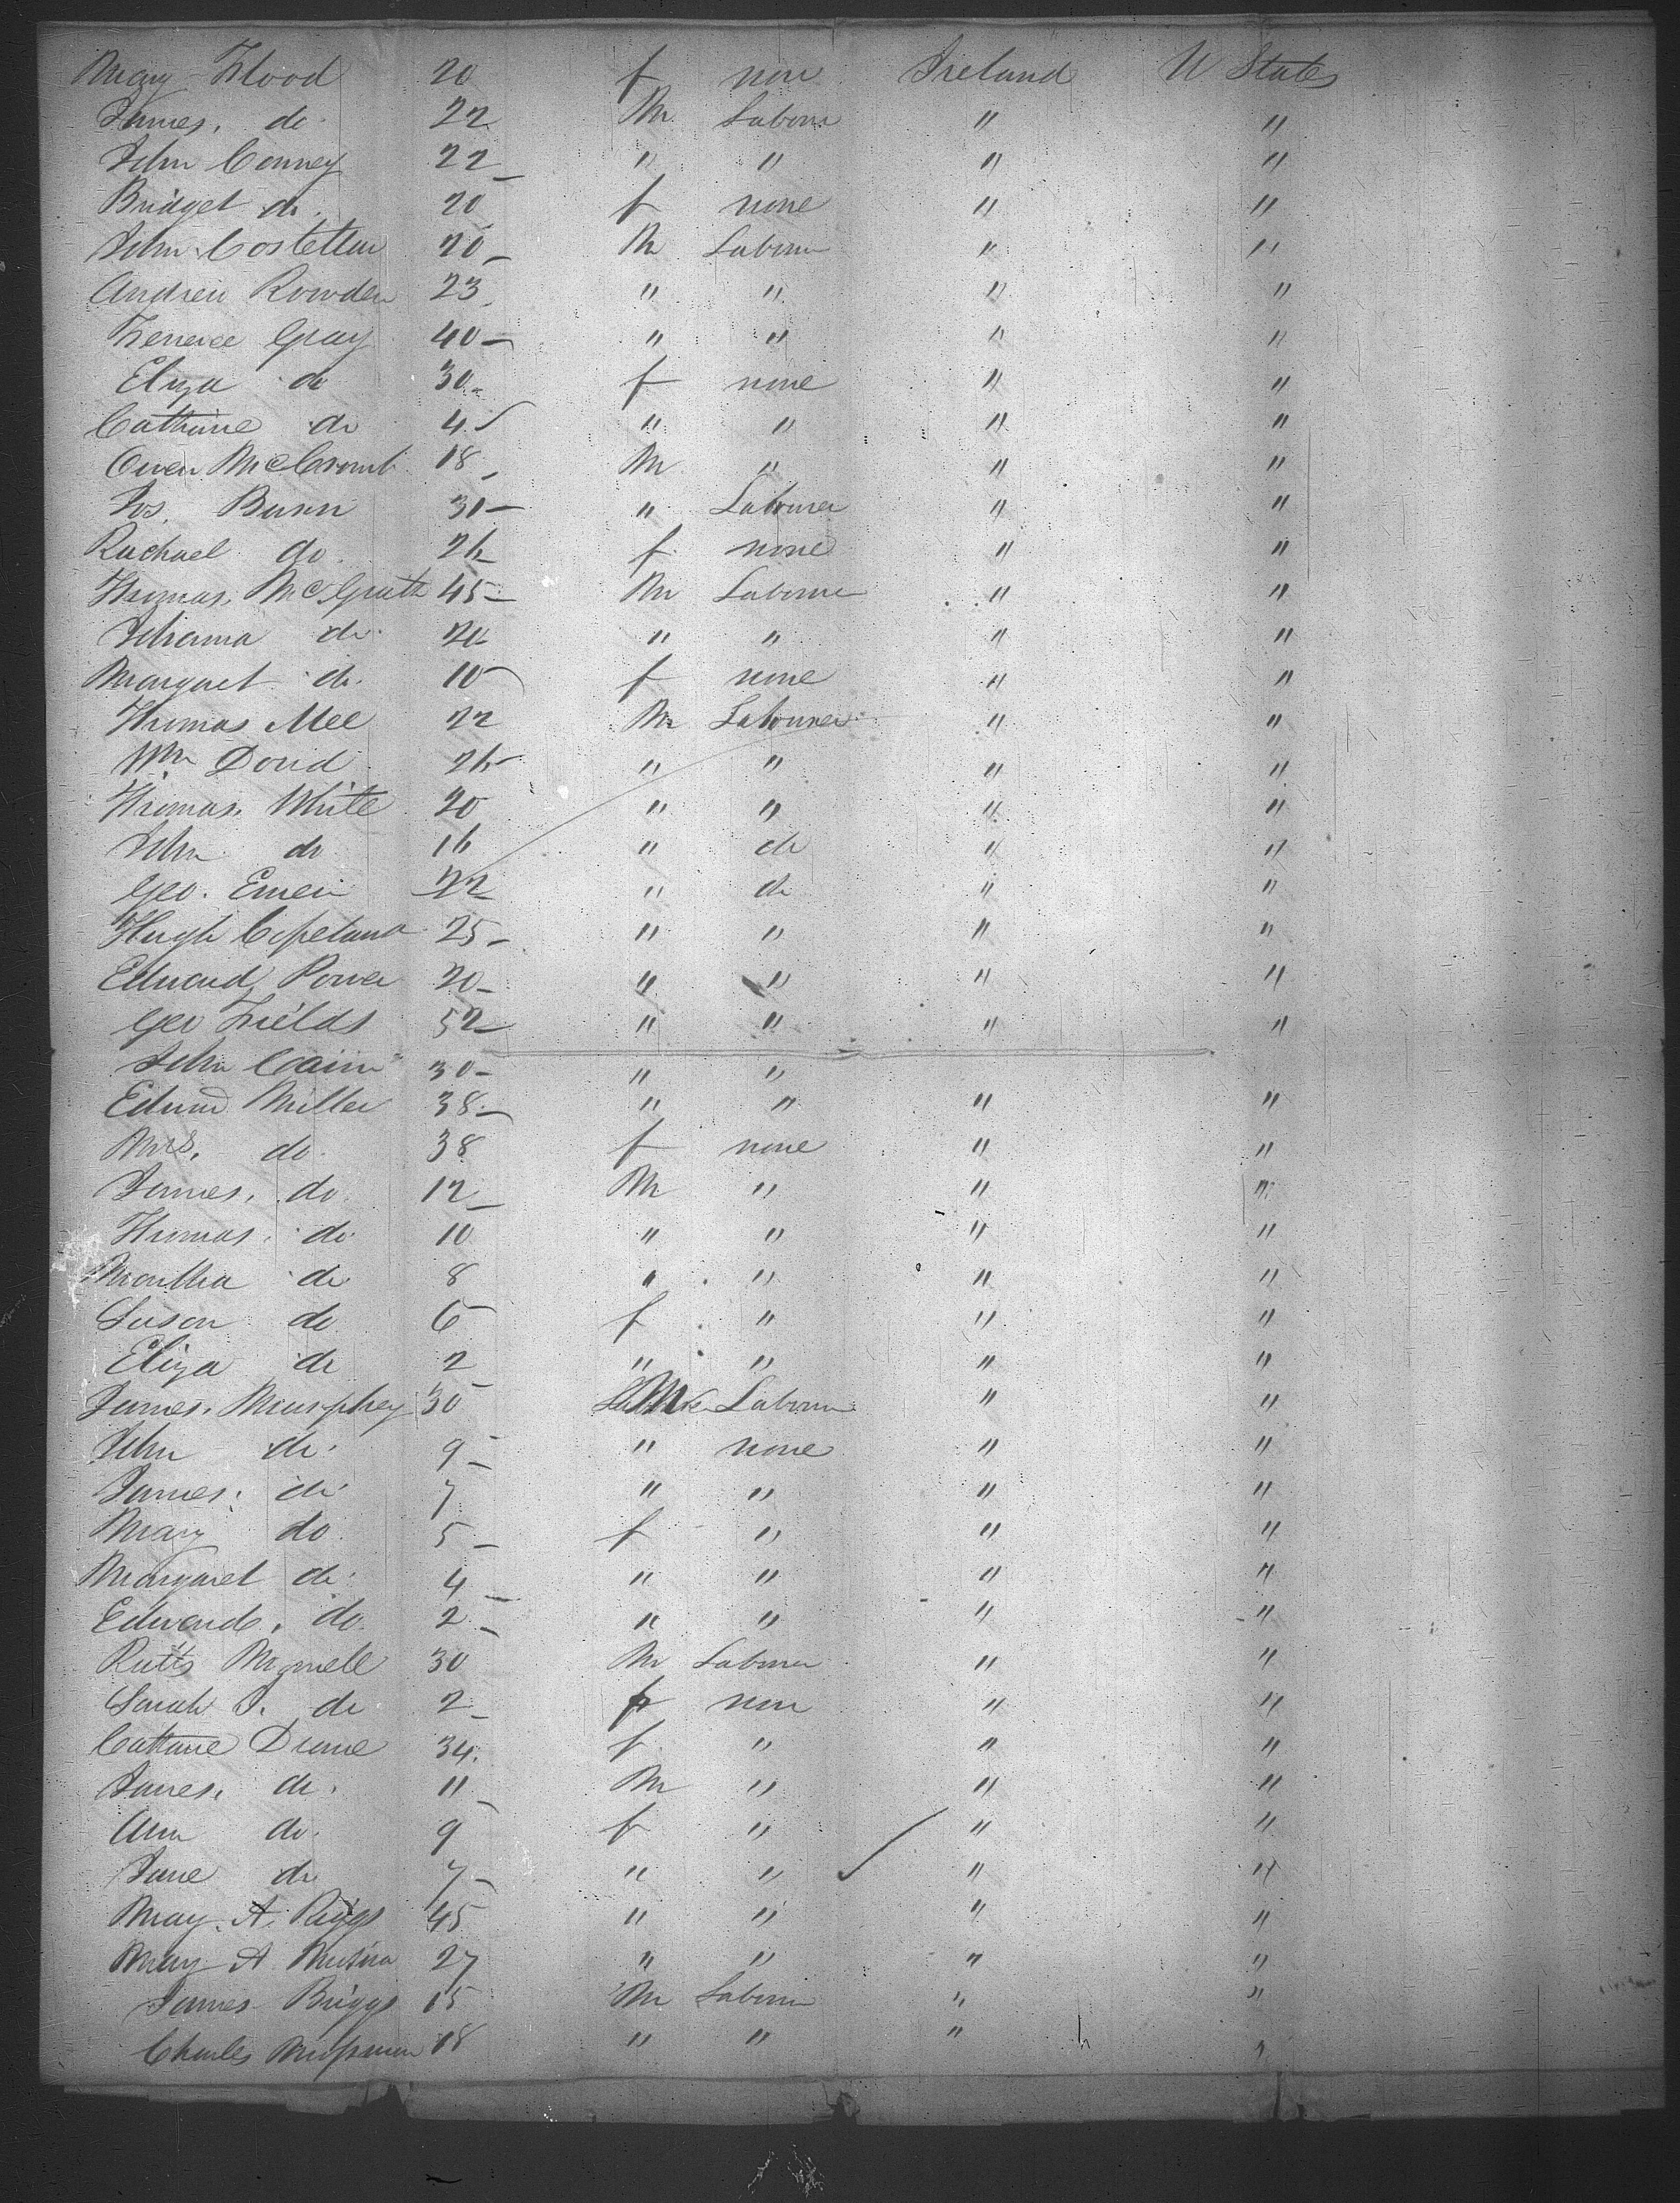 Mary Flood 20 f non Ireland U States
James. do. 22 M Labour " "
John Conney 22 " " " "
Bridget do. 20 f none " "
John Costellow 20 M Labour " "
Andrew Rowden 23 " " " "
Terrence Gray 40 " " " "
Eliza do 30 f none " "
Cathrine do 4 " " " "
Owen McCromb 18 M " " "
Jos. Burn 31 " Labourer " "
Rachael do. 26 f none " "
Thomas. McGrath 45 M Labourer " "
Johanna do. " " " "
Margaret do. 10 f none " "
Thomas Mee 22 M Labourer " "
Wm David 26 " " " "
Thomas. White 20 " " " "
John do 16 " do " "
Geo. 22 " do " "
Hugh Copeland 25 " " " "
Edward Power 20 " " " "
Geo Fields 52 " " " "
John Cain 30 " "
Edwd Miller 38 " " " "
Mrs. do. 38 f none " "
James. do. 12 M " " "
Thomas. do. 10 " " " "
Martha do. 8 " " " "
Suson do 6 f " " "
Eliza do 2 " " " "
James. Murphey 30 M Labour " "
John do. 9 " none " "
James. do. 7 " " " "
Mary do. 5 f " " "
Margaret do. 4 " " " "
Edward. do. 2 " " " "
30 M Labour " "
Sarah J. do 2 f non " "
Cathrine 34. f " " "
James. do. 11 M " " "
Ann do. 9 f " " "
Jane do 7 " " " "
Mary. A. Riggs 45 " " " "
Mary A 27 " " " "
James Briggs 15 M Labour " "
Charles 18 " " " "